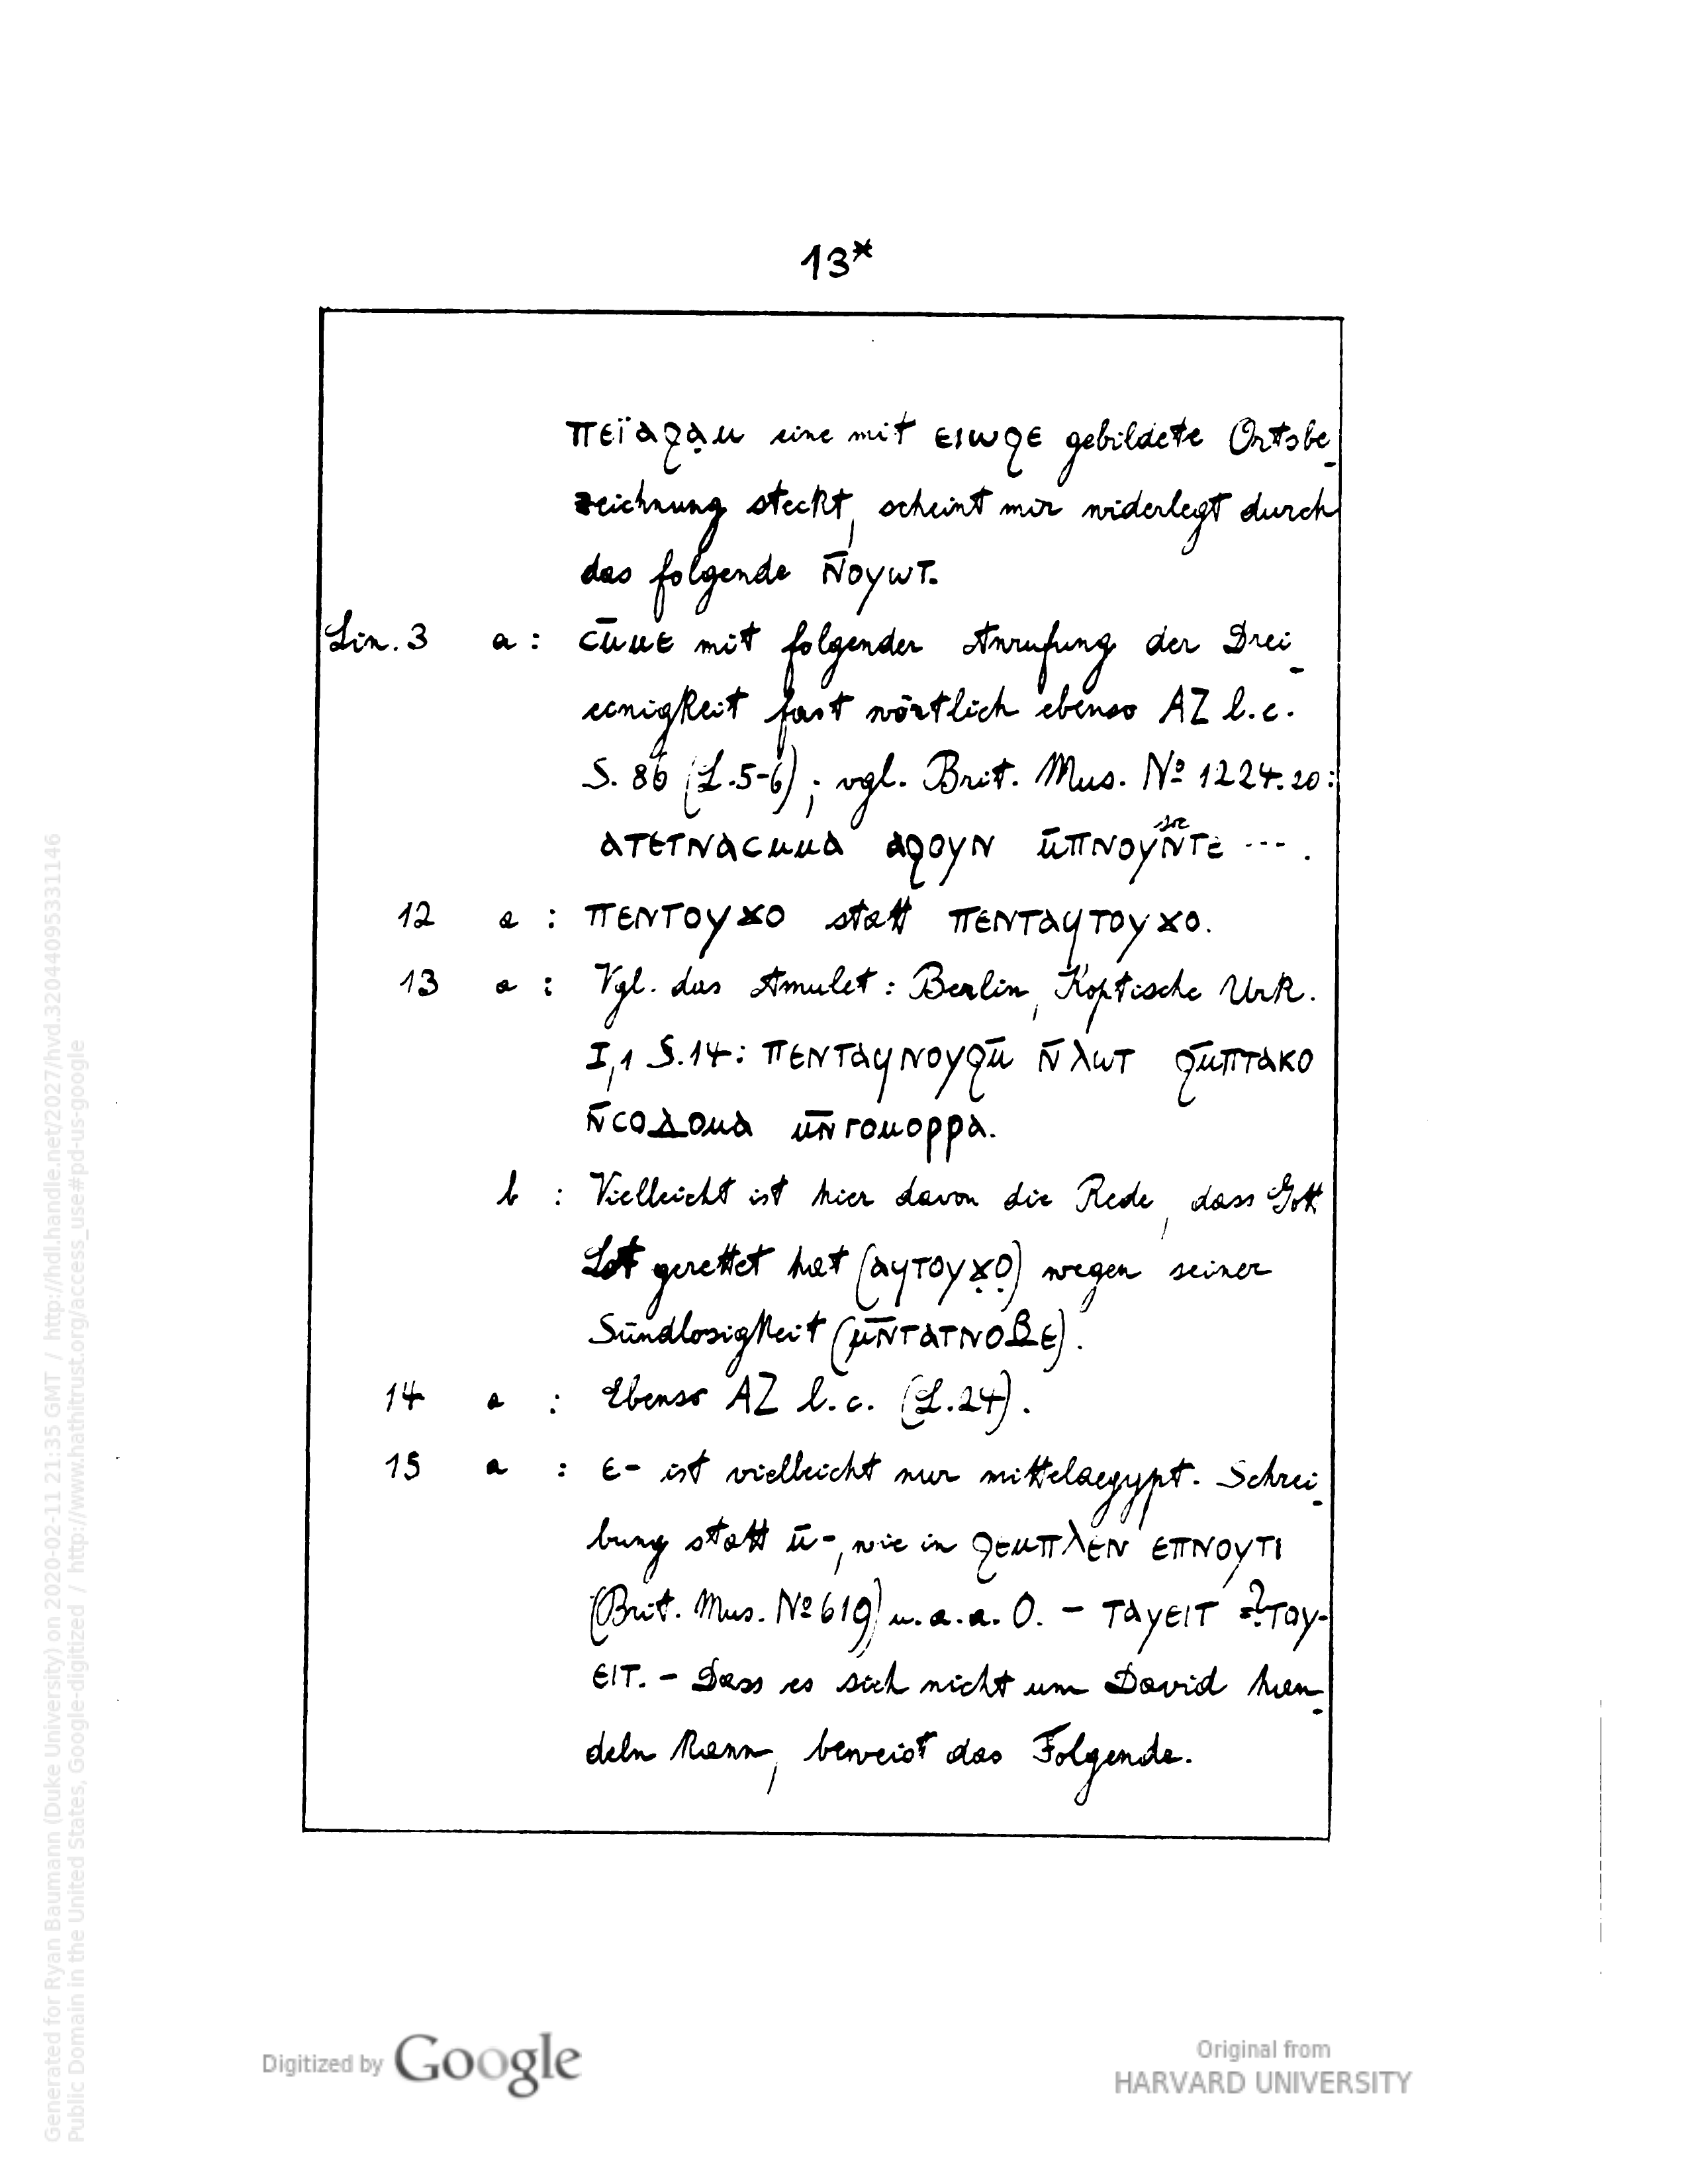 13*
ⲡⲉⲓ̈ⲁϩⲁ̣ⲙ eine mit ⲉⲓⲱϩⲉ gebildete Ortsbe-
zeichnung steckt, scheint mir widerlegt durch
das folgende ⲛ̄ⲟⲩⲱⲧ.
Lin. 3 a : ⲥⲙ̄ⲙⲉ mit folgender Anrufung der Drei-
einigkeit fast wörtlich ebenso AZ l.c.
S. 86 (L.5-6); vgl. Brit. Mus. Nº 1224.20:
ⲁⲧⲉⲧⲛⲁⲥⲙⲙⲁ ⲁϩⲟⲩⲛ ⲙ̄ⲡⲛⲟⲩⲛ̄ⲧⲉ (sic) --- .
12 a : ⲡⲉⲛⲧⲟⲩϫⲟ statt ⲡⲉⲛⲧⲁϥⲧⲟⲩϫⲟ.
13 a : Vgl. das Amulet : Berlin, Koptische Urk.
I,1 S.14: ⲡⲉⲛⲧⲁϥⲛⲟⲩϩⲙ̄ ⲛ̄ ⲗⲱⲧ ϩⲙ̄ⲡⲧⲁⲕⲟ
ⲛ̄ⲥⲟⲇⲟⲙⲁ ⲙⲛ̄ ⲅⲟⲙⲟⲣⲣⲁ.
b : Vielleicht ist hier davon die Rede, dass Gott
Lot gerettet hat (ⲁϥⲧⲟⲩϫ̣ⲟ̣) wegen seiner
Sündlosigkeit (ⲙⲛ̄ⲧⲁⲧⲛⲟⲃⲉ).
14 a : Ebenso AZ l.c. (L.24).
15 a : ⲉ- ist vielleicht nur mittelaegypt. Schrei-
bung statt ⲙ̄-, wie in ϩⲉⲙⲡⲗⲉⲛ ⲉⲡⲛⲟⲩⲧⲓ
(Brit. Mus. Nº 619) u.a.a.O. – ⲧⲁⲩⲉⲓⲧ =? ⲧⲟⲩ-
ⲉⲓⲧ. – Dass es sich nicht um David han-
deln kann, beweist das Folgende.
Generated for Ryan Baumann (Duke University) on 2020-02-11 21:35 GMT / http://hdl.handle.net/2027/hvd.32044095331146
Public Domain in the United States, Google-digitized / http://www.hathitrust.org/access_use#pd-us-google
Digitized by Google
Original from
HARVARD UNIVERSITY